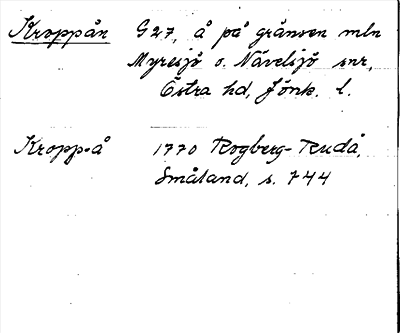 Kroppån G27, å på gränsen mln
Myresjö o. Nävelsjö snr,
Östra hd, Jönk. l.
Kropp-å 1770 Rogberg-Rudå,
Småland, s. 744